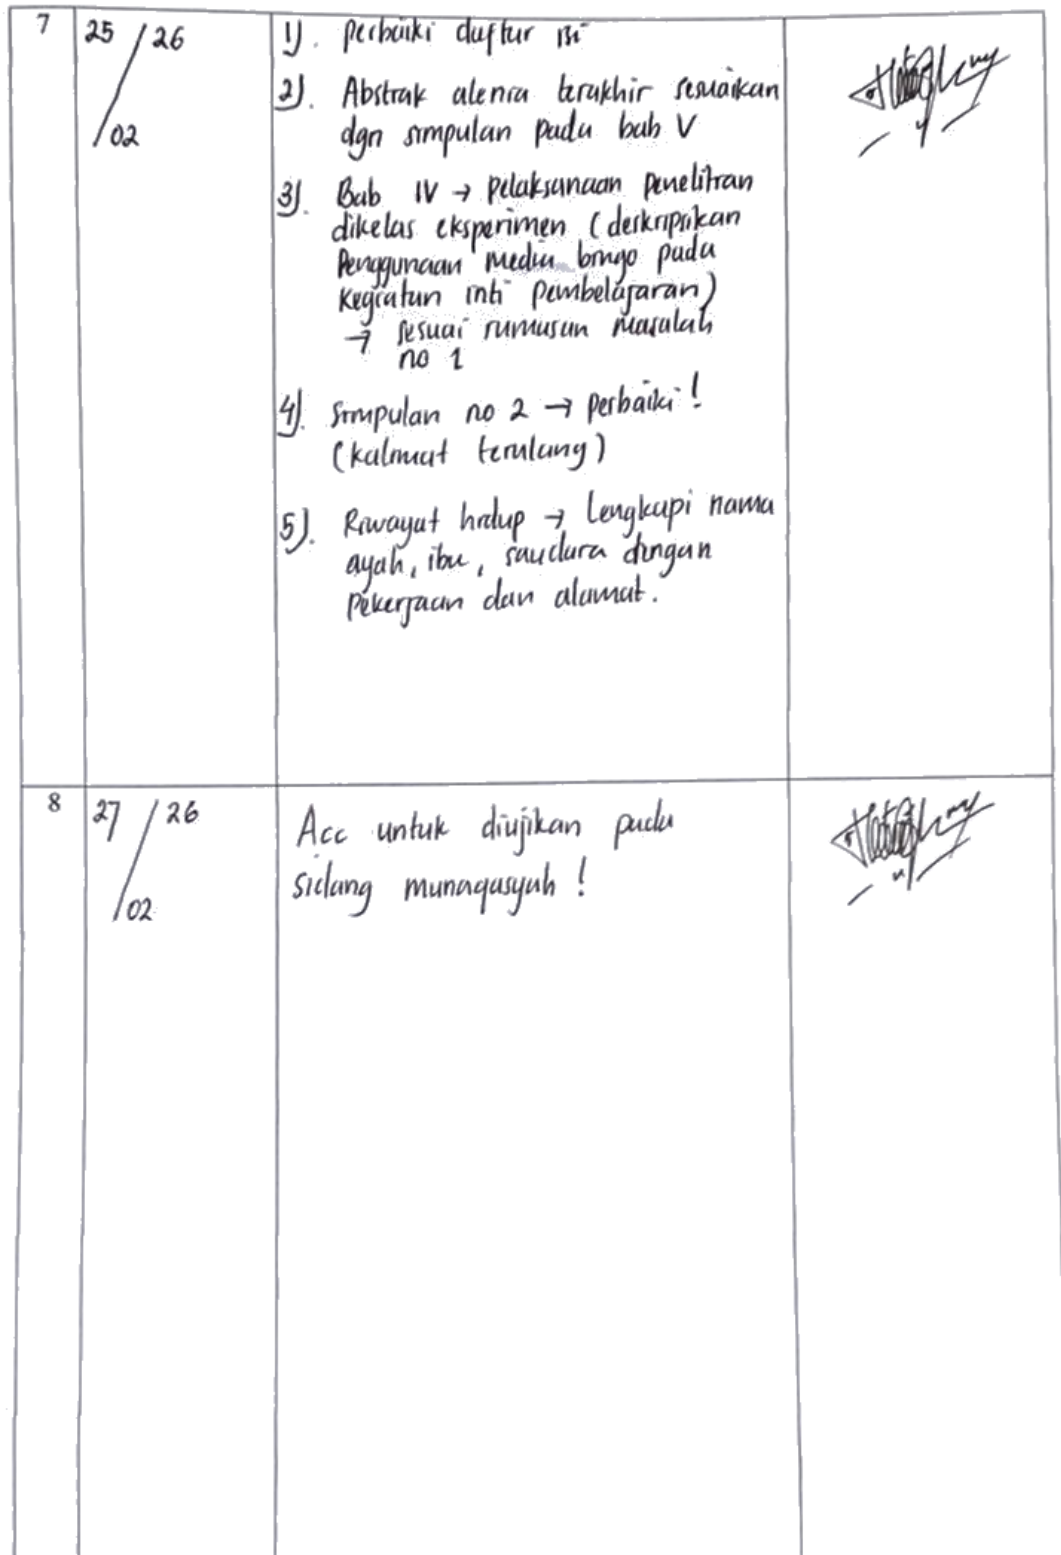 7
25 / 26
/ 02
1). perbaiki daftar isi
2). Abstrak alenia terakhir sesuaikan
dgn simpulan pada bab V
3). Bab IV → pelaksanaan penelitian
dikelas eksperimen (deskripsikan
Penggunaan media bingo pada
kegiatan inti pembelajaran)
→ sesuai rumusan masalah
no 1
4). Simpulan no 2 → perbaiki !
(kalimat terulang)
5). Riwayat hidup → lengkapi nama
ayah, ibu, saudara dengan
pekerjaan dan alamat.
8
27 / 26
/ 02
Acc untuk diujikan pada
sidang munaqasyah !